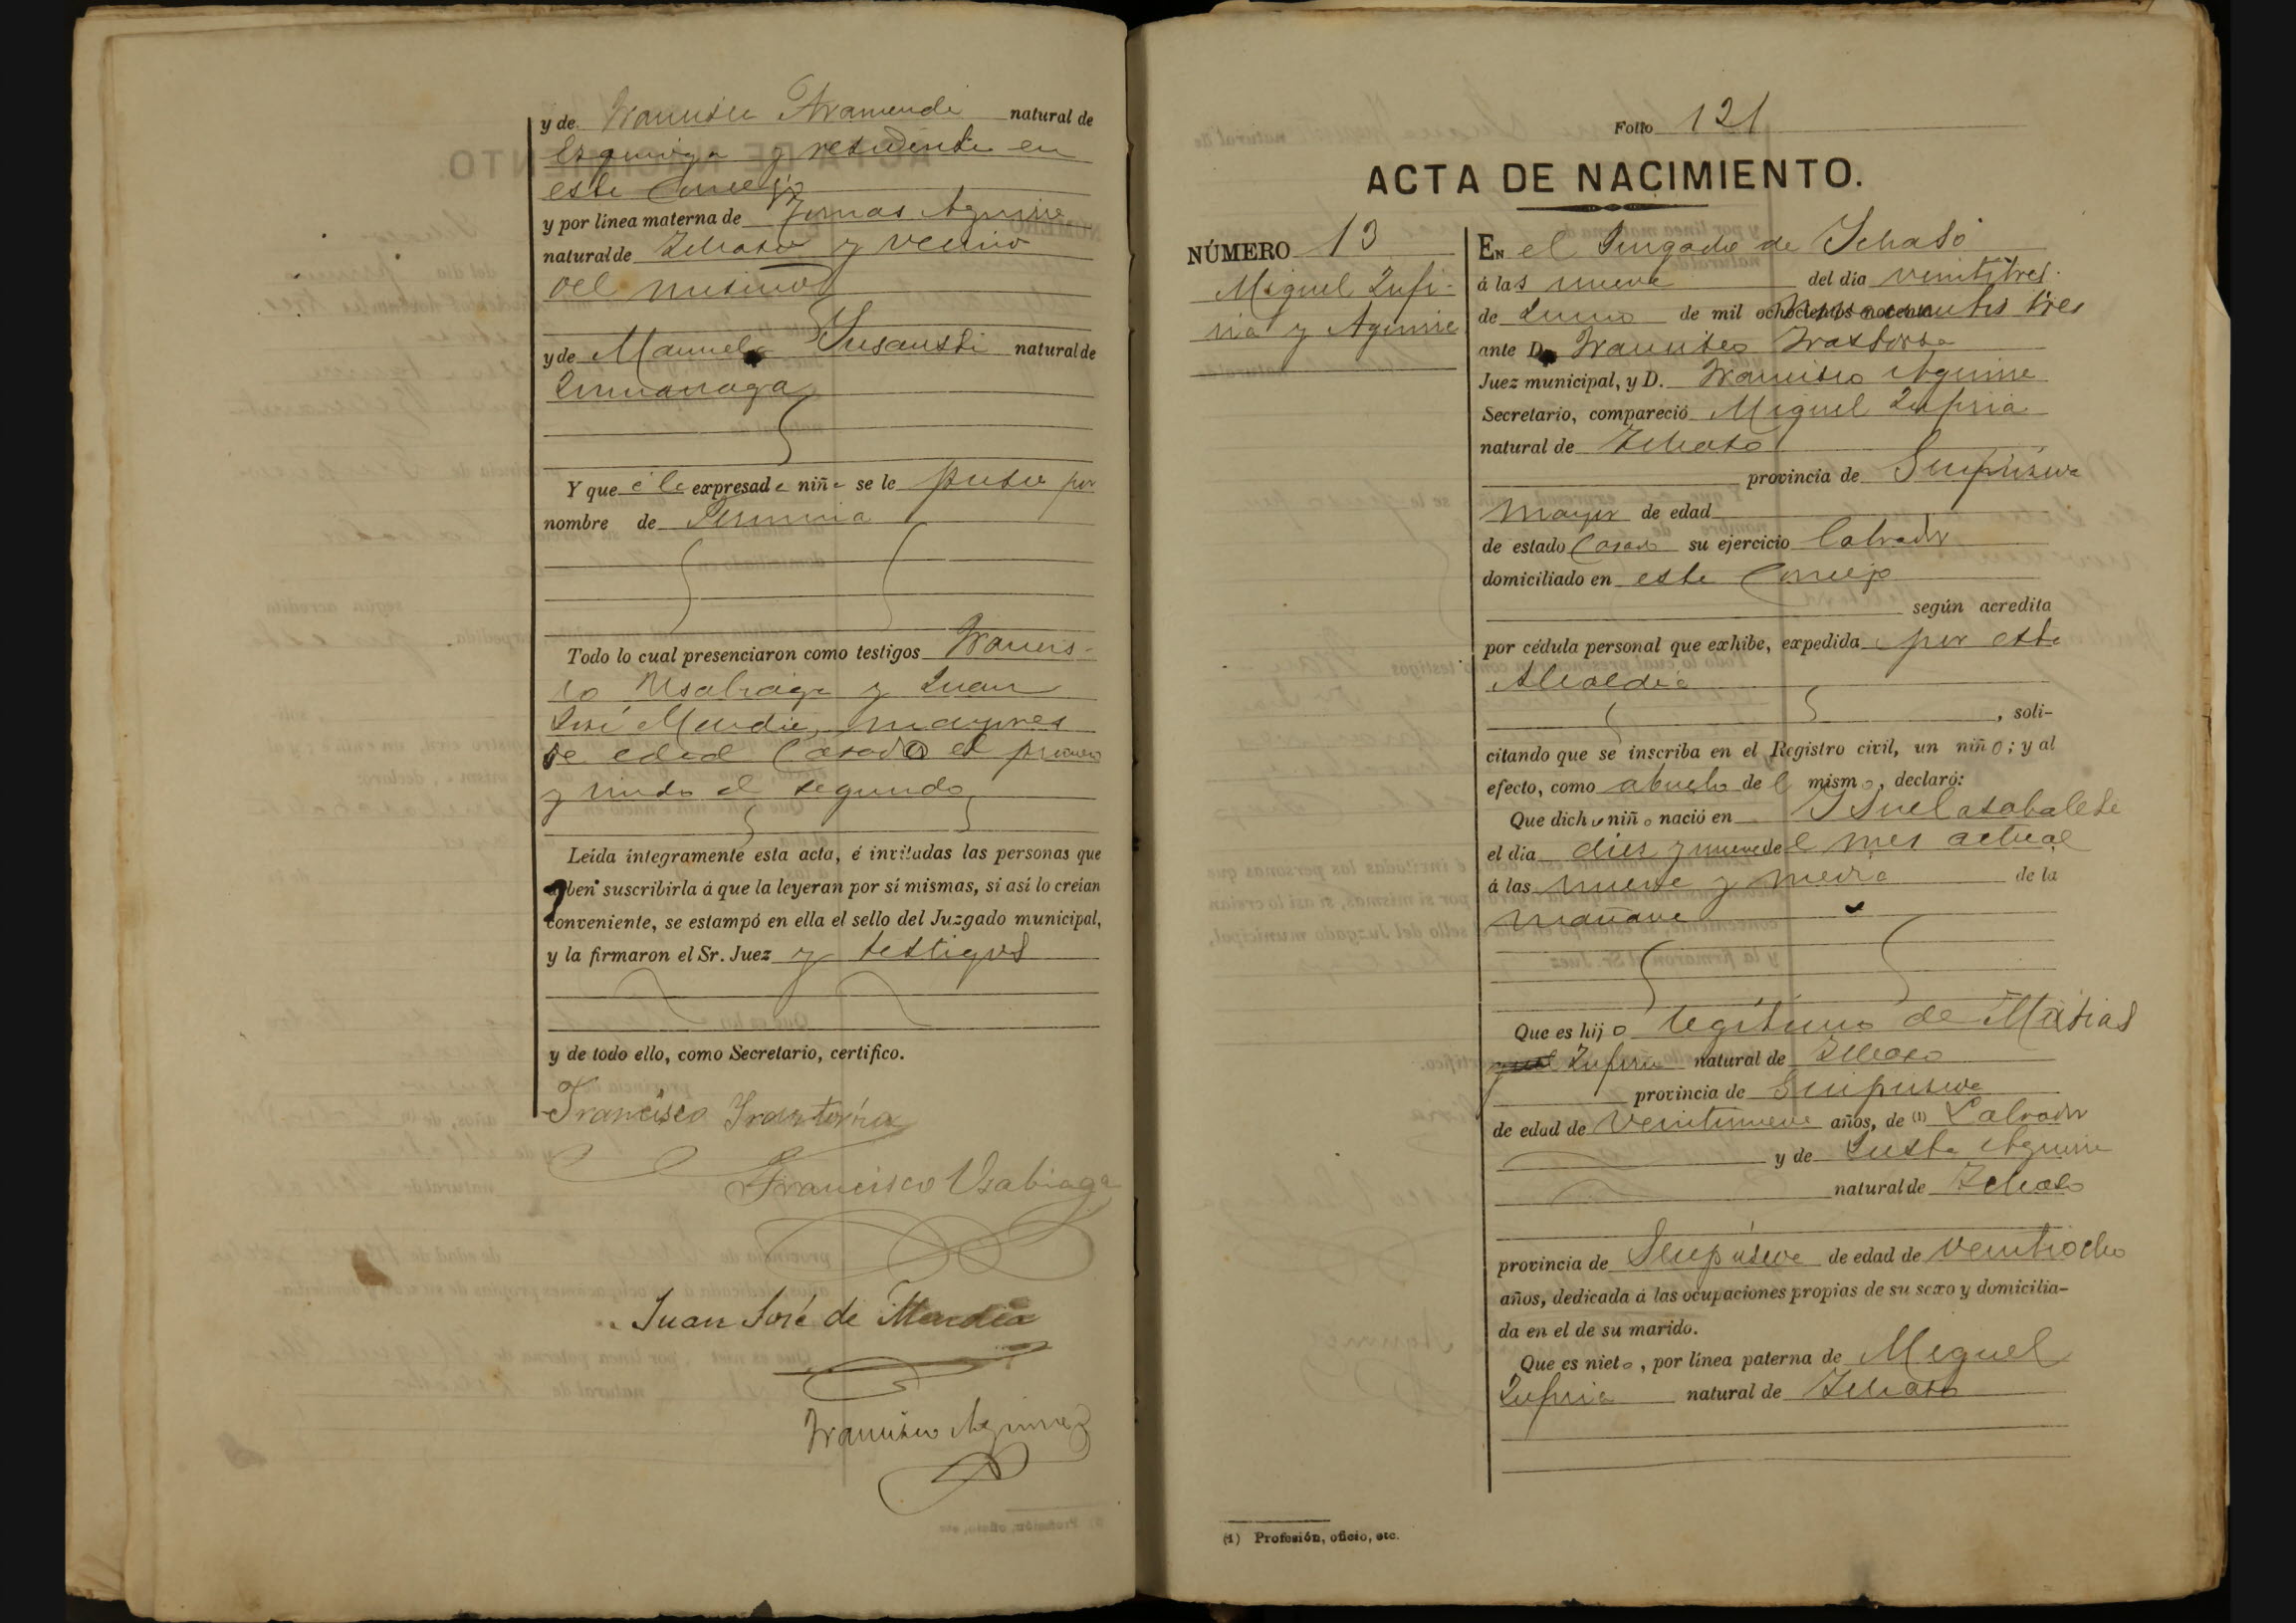 y de Francisca Aramendi natural de
Ezquioga y residente en
este Concejo
y por línea materna de Tomas Aguirre
natural de Ichaso y vecino
del mismo
y de Manuela natural de
Y que á la expresada niña se le puso por
nombre de Fermina
Todo lo cual presenciaron como testigos Francis-
co Usabiaga y Juan
José Mendia, mayores
de edad Casado el primero
y viudo el segundo
Leída íntegramente esta acta, é invitadas las personas que
deben suscribirla á que la leyeran por sí mismas, si así lo creían
conveniente, se estampó en ella el sello del Juzgado municipal,
y la firmaron el Sr. Juez y testigos
y de todo ello, como Secretario, certifico.
Francisco Irastorza
Francisco Usabiaga
Juan José de Mendia
Francisco Aguirre
Folio 121
ACTA DE NACIMIENTO.
NÚMERO 13
Miguel Zufi-
ria y Aguirre
EN el Jusgado de Ichaso
á las nueve del día veintitres
de Junio de mil ochocientos noventa novecientos tres
ante D. Francisco Irastorza
Juez municipal, y D. Francisco Aguirre
Secretario, compareció Miguel Zufiria
natural de Ichaso
provincia de Guipúzcoa
mayor de edad
de estado Casado su ejercicio Labrador
domiciliado en este Concejo
según acredita
por cédula personal que exhibe, expedida por esta
Alcaldia
, soli-
citando que se inscriba en el Registro civil, un niño; y al
efecto, como abuelo del mismo, declaró:
Que dicho niño nació en
el día diez y nueve del mes actual
á las nueve y media de la
mañana
Que es hijo legítimo de Matias
Zufiria natural de Ichaso
provincia de Guipuzcoa
de edad de veintinueve años, de (1) Labrador
y de Justa Aguirre
natural de Ichaso
provincia de Guipúzcoa de edad de veintiocho
años, dedicada á las ocupaciones propias de su sexo y domicilia-
da en el de su marido.
Que es nieto, por línea paterna de Miguel
Zufiria natural de Ichaso
(1) Profesión, oficio, etc.